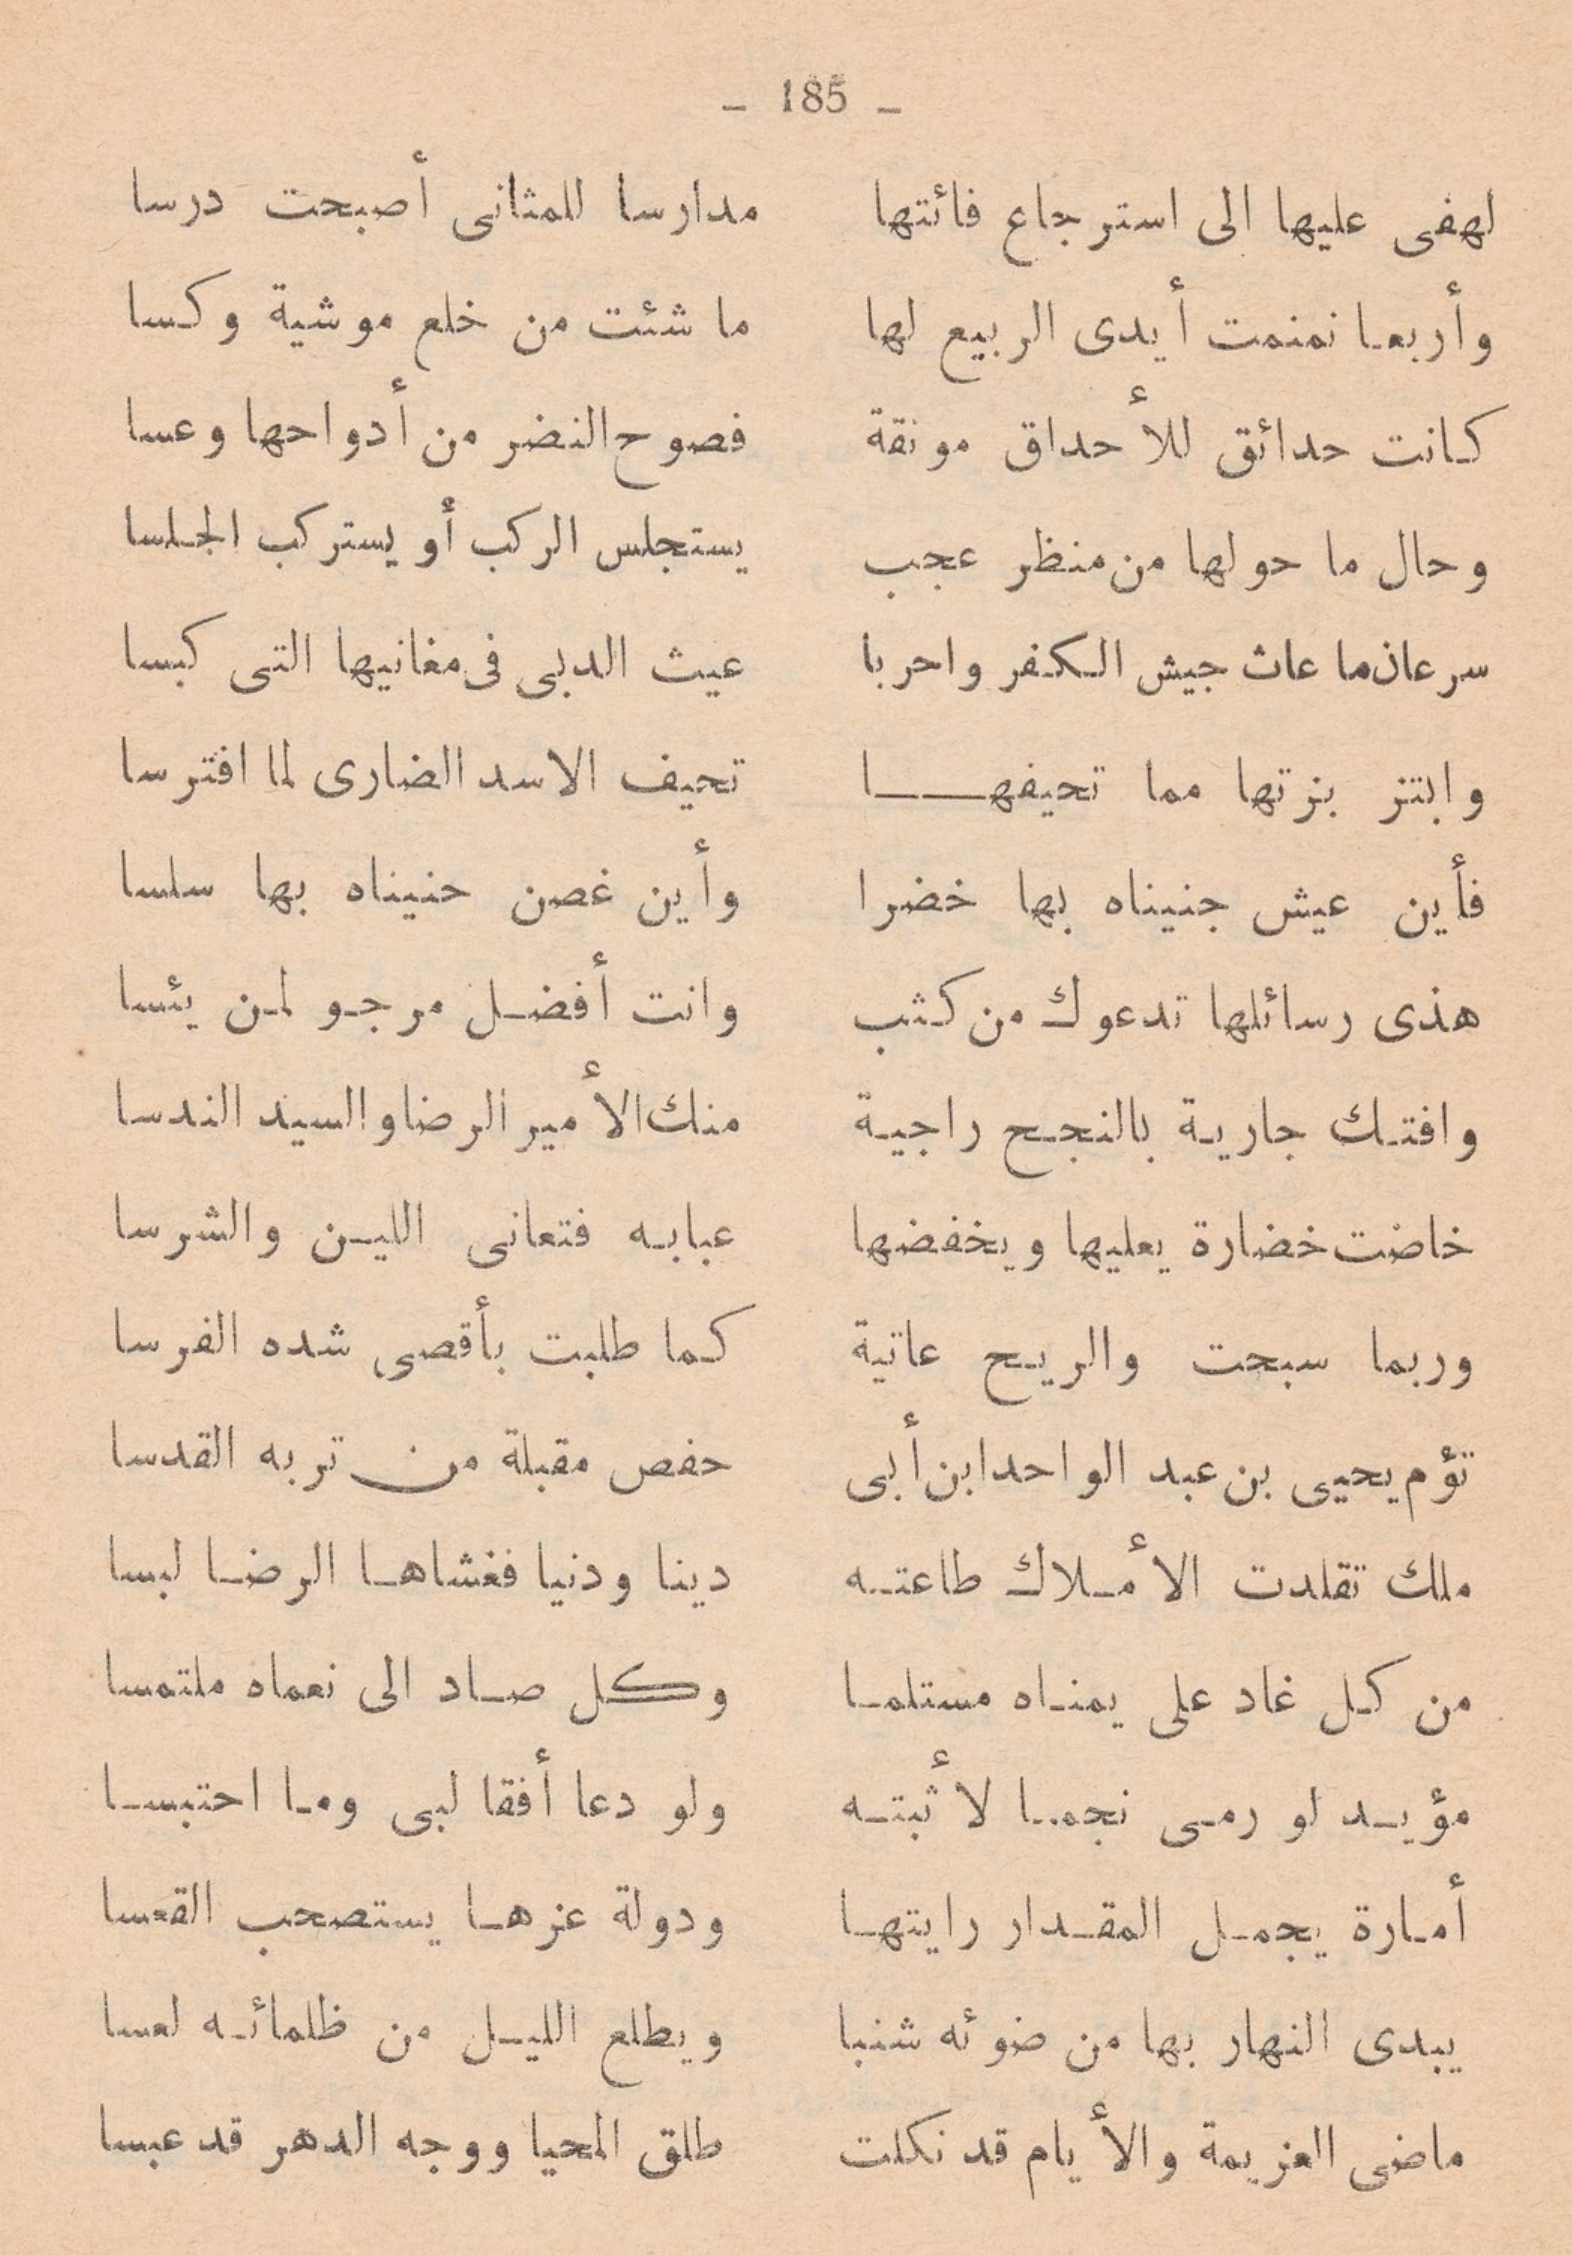 – 185 –
لهفى عليها الى استرجاع فائتها مدارسا للمثانى أصبحت درسا
وأربعا نمنمت أيدى الربيع لها ما شئت من خلع موشية وكسا
كانت حدائق للأحداق مونقة فصوح النضر من أدواحها وعسا
وحال ما حولها من منظر عجب يستجلس الركب أو يستركب الجلسا
سرعان ما عاث جيش الكفر واحربا عيث الدبى فى مغانيها التى كبسا
وابتز بزتها مما تحيفها تحيف الاسد الضارى لما افترسا
فأين عيش جنيناه بها خضرا وأين غصن حنيناه بها سلسا
هذى رسائلها تدعوك من كثب وانت أفضل مرجو لمن يئسا
وافتك جارية بالنجح راجية منك الأمير الرضا والسيد الندسا
خاضت خضارة يعليها ويخفضها عبابه فتعانى اللين والشرسا
وربما سبحت والريح عاتية كما طلبت بأقصى شده الفرسا
تؤم يحيى بن عبد الواحد ابن أبى حفص مقبلة من تربه القدسا
ملك تقلدت الأملاك طاعته دينا ودنيا فغشاها الرضا لبسا
من كل غاد على يمناه مستلما وكل صاد الى نعماه ملتمسا
مؤيد لو رمى نجما لأثبته ولو دعا أفقا لبى وما احتبسا
أمارة يجمل المقدار رايتها ودولة عزها يستصحب القعسا
يبدى النهار بها من ضوئه شنبا ويطلع الليل من ظلمائه لعسا
ماضى العزيمة والأيام قد نكلت طلق المحيا ووجه الدهر قد عبسا